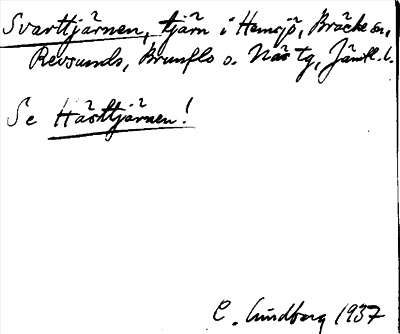 Svarttjärnen, tjärn i Hemsjö, Bräcke sn,
Revsunds, Brunflo o. Näs tg, Jämtl. l.
Se Hästtjärnen!
C. Lundberg 1937